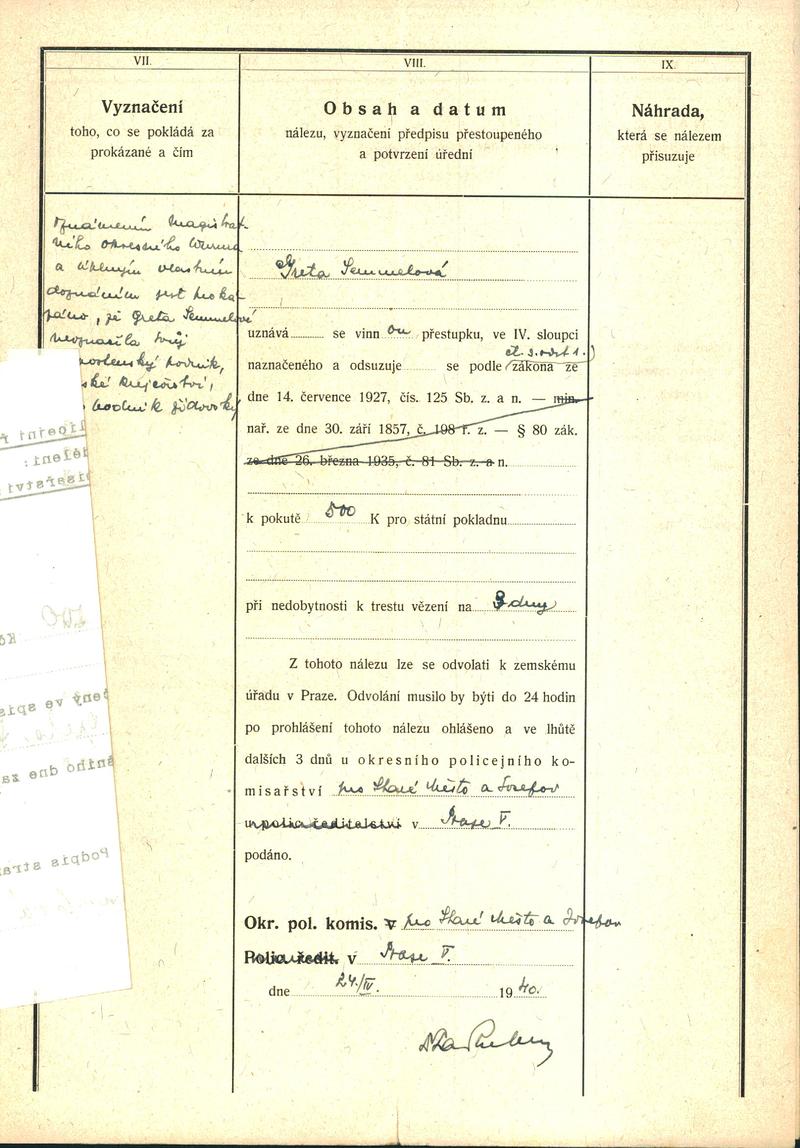 VII.
Vyznačení
toho, co se pokládá za
prokázané a čím
Oznámením Magistrát-
ního okresního úřadu
a úplným vlastním
doznáním jest proká-
záno, že Greta Semmelová
neoznačila svůj
krejčovství,
podnik židovský
VIII.
Obsah a datum
nálezu, vyznačení předpisu přestoupeného
a potvrzení úřední
Greta Semmelová
uznává se vinn ou přestupku, ve IV. sloupci
čl. 3. odst 1.)
naznačeného a odsuzuje se podle zákona ze
dne 14. července 1927, čís. 125 Sb. z. a n. — min.
nař. ze dne 30. září 1857, č. 198 ř. z. — § 80 zák.
ze dne 26. března 1935, č. 81 Sb. z. a n.
k pokutě 500 K pro státní pokladnu
při nedobytnosti k trestu vězení na 3 dny
Z tohoto nálezu lze se odvolati k zemskému
úřadu v Praze. Odvolání musilo by býti do 24 hodin
po prohlášení tohoto nálezu ohlášeno a ve lhůtě
dalších 3 dnů u okresního policejního ko-
misařství pro Staré Město a Josefov
u polico ředitelství v Praze V.
podáno.
Okr. pol. komis. v pro Staré Město a Josefov
Polic. ředit. v Praze V.
dne 24./IV. 1940.
IX.
Náhrada,
která se nálezem
přisuzuje